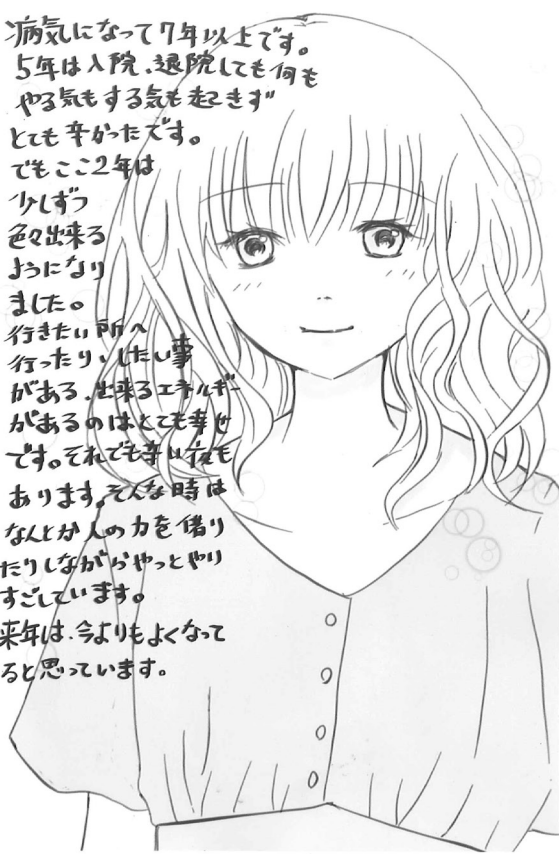 病気になって7年以上です。
5年は入院、退院しても何も
やる気もする気も起きず
とても辛かったです。
でもここ2年は
少しずつ
色々出来る
ようになり
ました。
行きたい所へ
行ったり、したい事
がある、出来るエネルギー
があるのはとても幸せ
です。それでも辛い夜も
あります。そんな時は
なんとか人の力を借り
たりしながらやっとやり
すごしています。
来年は、今よりもよくなって
ると思っています。